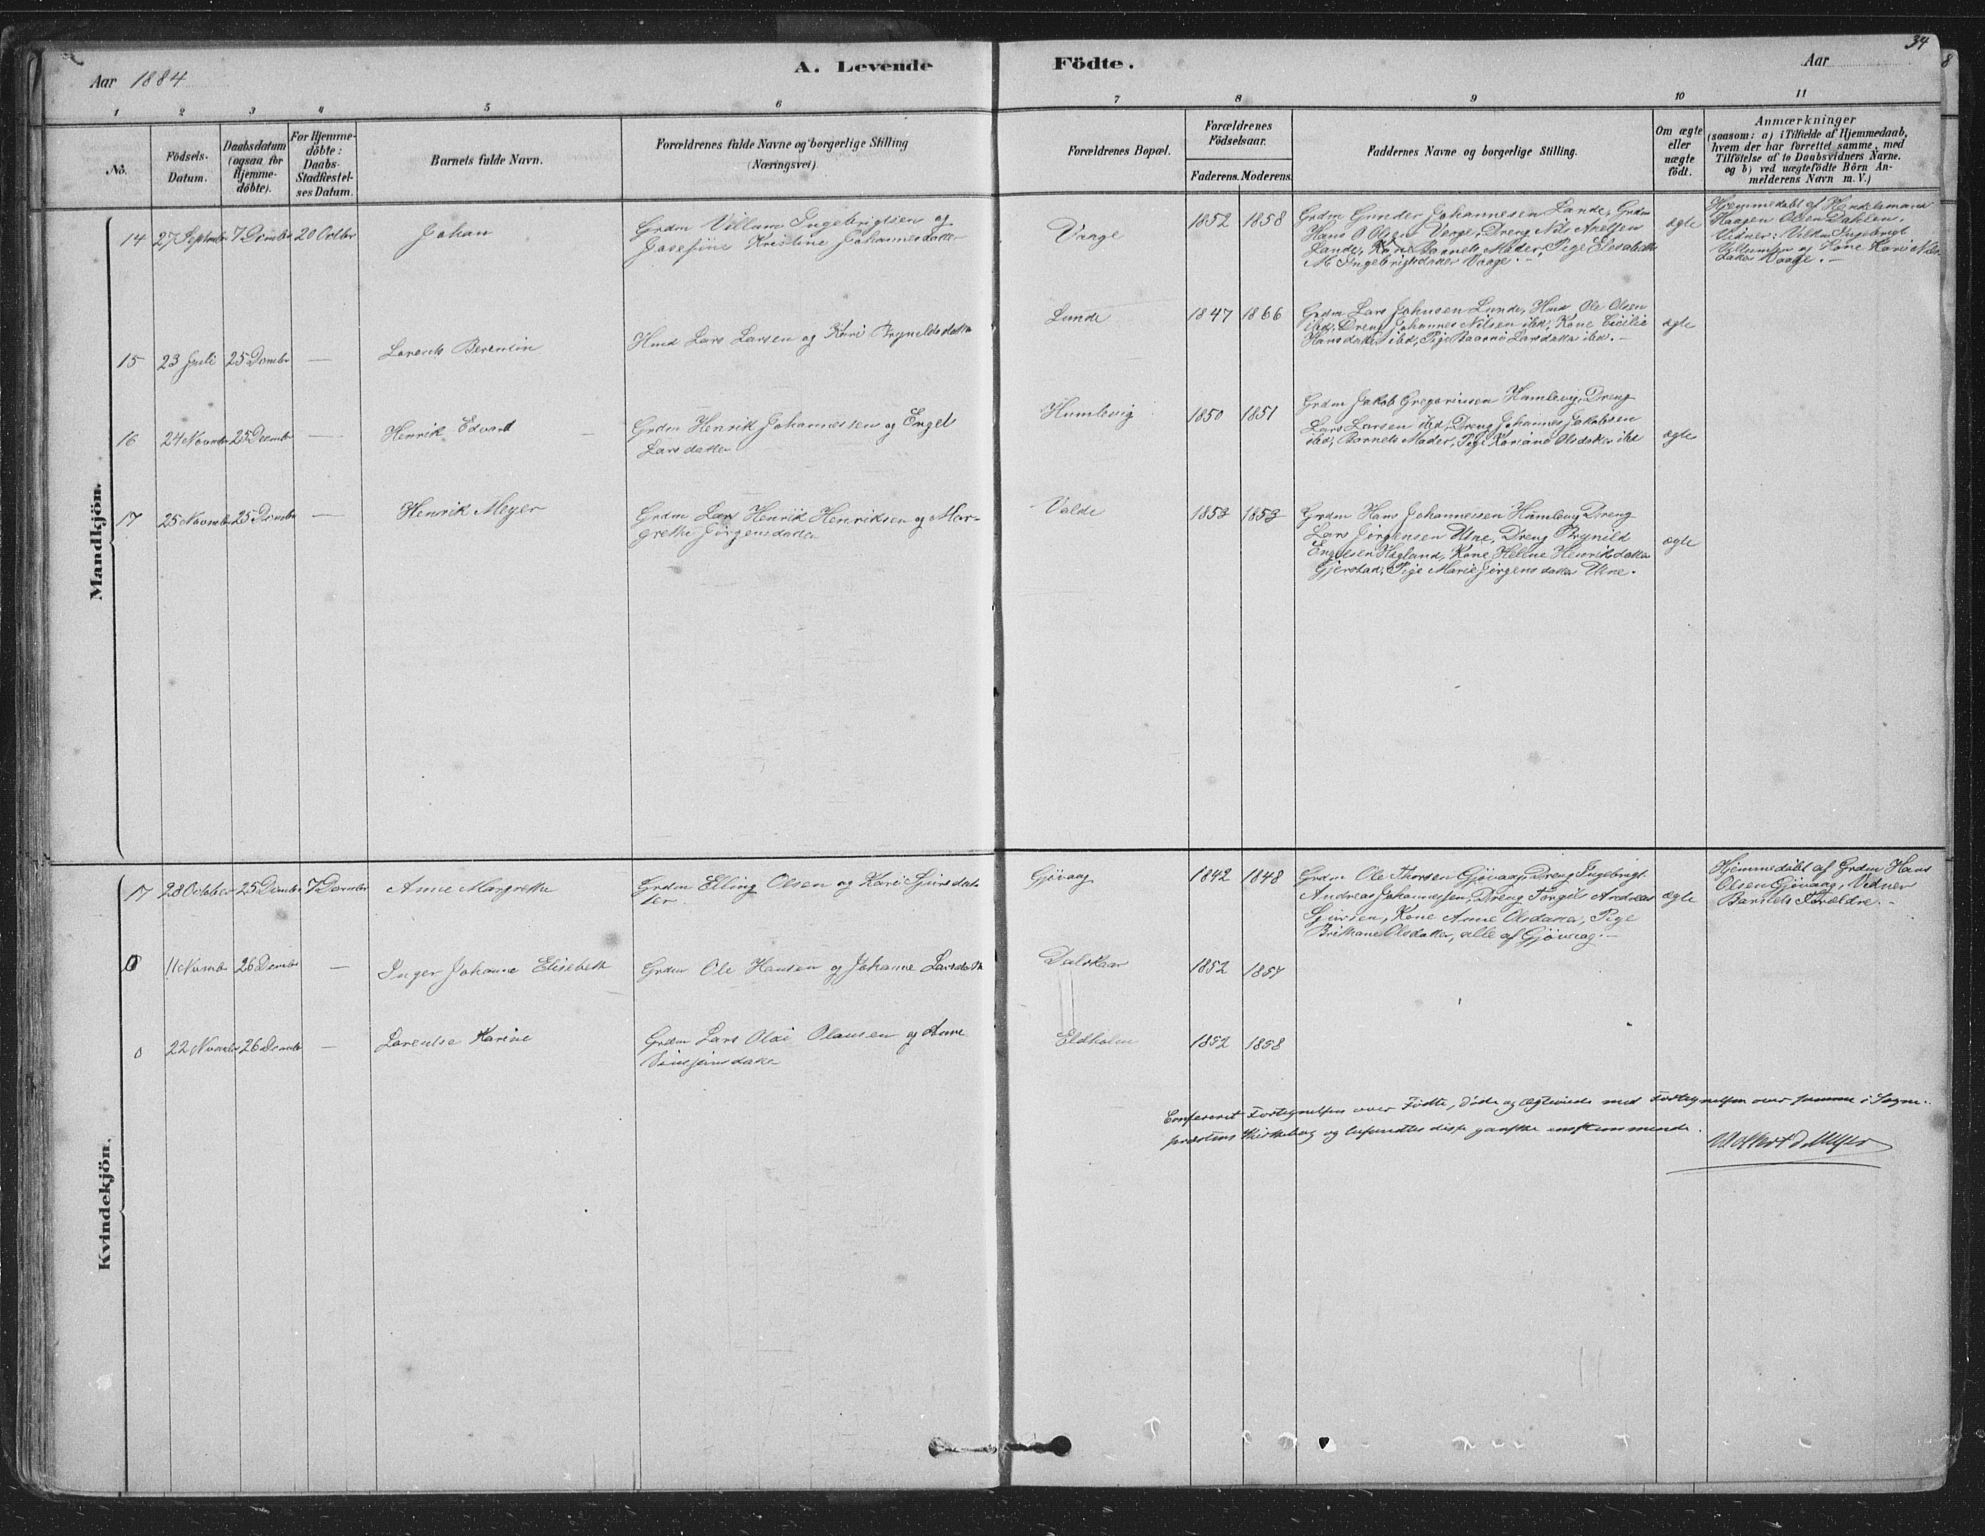 34
Aar 1884
A. Levende Födte.
Aar
1 2 3 4 5 6 7 8 9 10 11
No.
Födsels-
Datum.
Daabsdatum
(ogsaa for
Hjemme-
döbte).
For Hjemme-
döbte:
Daabs-
Stadfæstel-
ses Datum.
Barnets fulde Navn.
Forældrenes fulde Navne og borgerlige Stilling
(Næringsvei).
Forældrenes Bopæl.
Forældrenes
Födselsaar.
Faderens. Moderens.
Faddernes Navne og borgerlige Stilling.
Om ægte
eller
uægte
födt.
Anmærkninger
(saasom: a) i Tilfælde af Hjemmedaab,
hvem der har forrettet samme, med
Tilföielse af to Daabsvidners Navne.
og b) ved uægtefödte Börn An-
melderens Navn m. V.)
Mandkjön.
14 27 September 7 Dcmbr 20 Octbr
Johan
Grdm Villum Ingebrigtsen og
Josefine Kristine Johannesdatter
Vaage
1852 1858
Grdm Gunder Johannesen Lande, Grdm
Hans O Olsen Verge, Dreng Nils Axelsen
Lande, Kone Barnets Moder, Pige Elisabeth
M Ingebrigtsdatter Vaage.
ægte
Hjemmedøbt af
Haagen Olsen Dahlen,
Vidner: Ingebrigt
Villumsen og Kone Kari Nils
datter Vaage.
15 23 Juli 25 Dcmbr —
Lorents Berentin
Hmd Lars Larsen og Kari Brynildsdatter
Lunde
1847 1866
Grdm Lars Johnsen Lunde, Hmd Ole Olsen
ibd, Dreng Johannes Nilsen ibd, Kone Cecilie
Hansdatter ibd, Pige Larsdatter ibd.
ægte
16 24 Novmbr 25 Decmbr —
Henrik Edvard
Grdm Henrik Johannessen og Engel
Larsdatter
Humlevig
1850 1851
Grdm Jakob Gregoriusen Humlevig, Dreng
Lars Larsen ibd, Dreng Johannes Jakobsen
ibd, Barnets Moder, Pige Olsdatter ibd
ægte
17 25 Novmbr 25 Dcmbr —
Henrik Meyer
Grdm Lars Henrik Henriksen og Mar-
grethe Jørgensdatter
Valde
1853 1853
Grdm Hans Johannesen Humlevig, Dreng
Lars Jørgensen Utne, Dreng Brynild
Engelsen Hagland, Kone Helene Henriksdatter
Gjerstad, Pige Marie Jørgensdatter Utne.
ægte
Kvindekjön.
17 28 October 25 Dcmbr 7 Dcmbr
Anne Margrethe
Grdm Elling Olsen og Kari Sjursdat-
ter.
Gjøvaag
1842 1848
Grdm Ole Thorsen Gjøvaag, Dreng Ingebrigt
Andreas Johannessen, Dreng Torgils Andreas
Sjursen, Kone Anne Olsdatter, Pige
Brithane Olsdatter, alle af Gjøvaag.
ægte
Hjemmedøbt af Grdm Hans
Olsen Gjøvaag, Vidner
Barnets Forældre.
0 11 Novmbr 26 Dcmbr —
Inger Johanne Elisebeth
Grdm Ole Hansen og Johanne Larsdatter
Dalskaar
1852 1857
0 22 Novmbr 26 Dcmbr —
Lorentse Karine
Grdm Lars Olai Olausen og Anne
Simsjonsdatter
Eldholm
1852 1858
Confereret Fortegnelsen over Fødte, døde og ægteviede med Fortegnelsen over samme i Sogne-
præstens Kirkebog og befundtes disse ganske enstemmende.